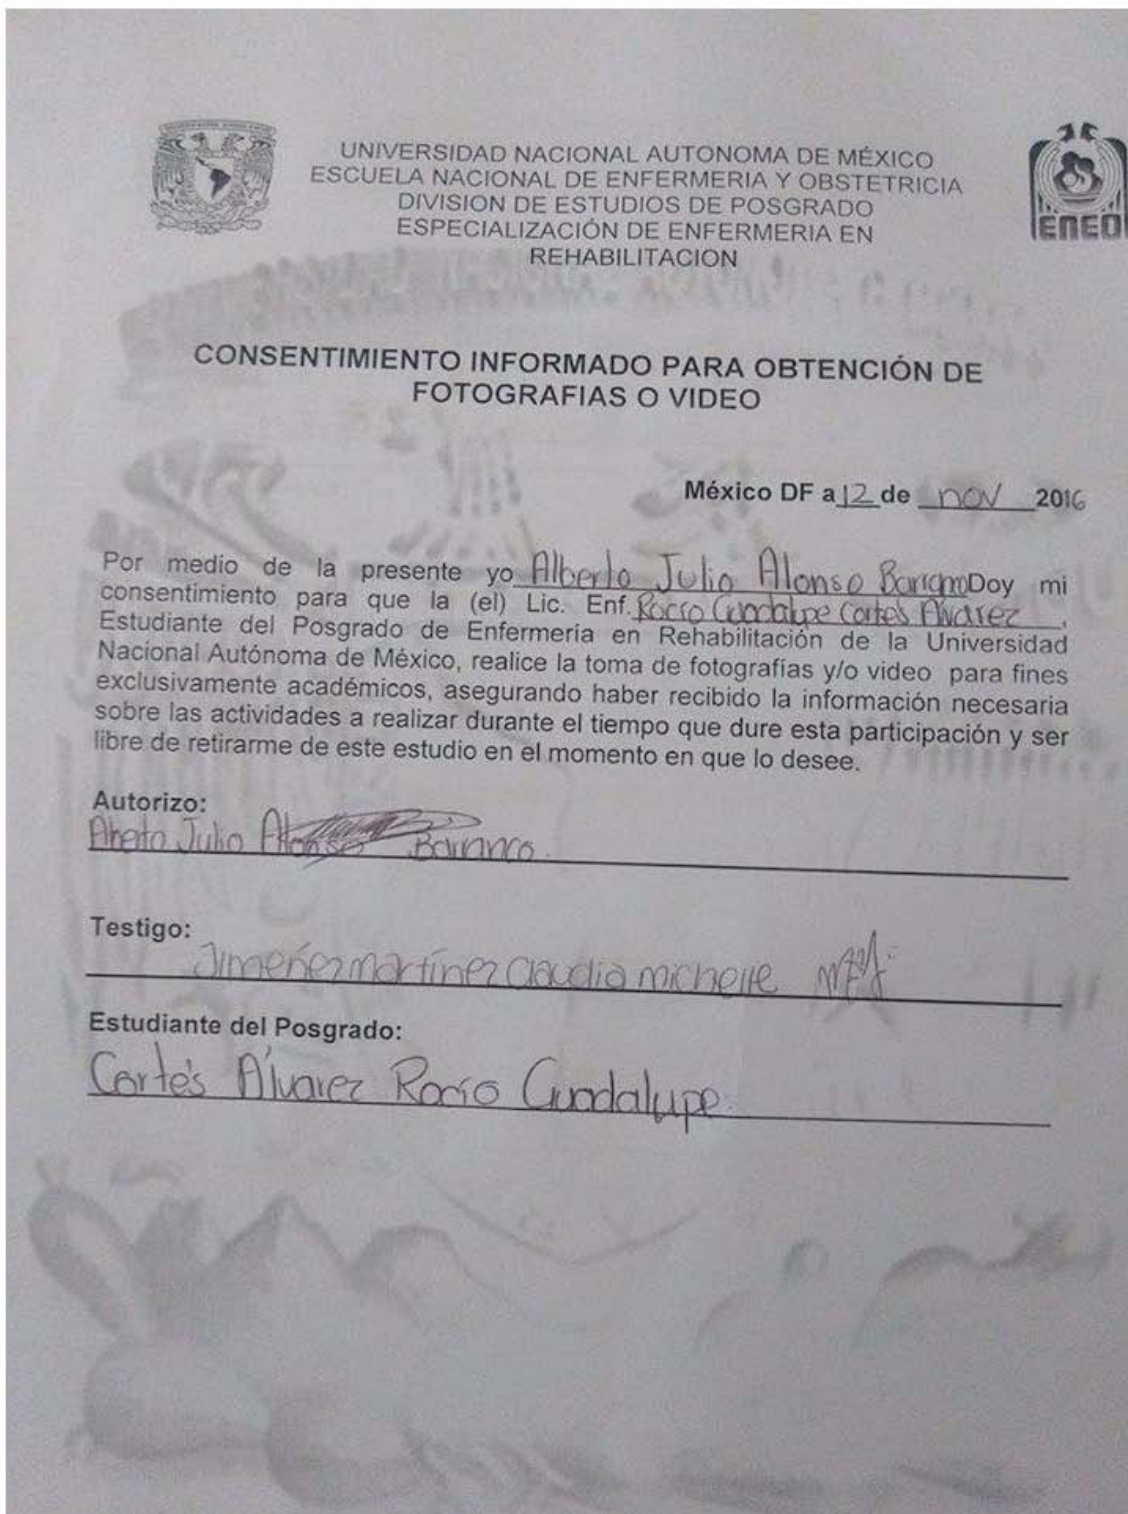 UNIVERSIDAD NACIONAL AUTONOMA DE MÉXICO
ESCUELA NACIONAL DE ENFERMERIA Y OBSTETRICIA
DIVISION DE ESTUDIOS DE POSGRADO
ESPECIALIZACIÓN DE ENFERMERIA EN
REHABILITACION
ENEO
CONSENTIMIENTO INFORMADO PARA OBTENCIÓN DE
FOTOGRAFIAS O VIDEO
México DF a 12 de nov 2016
Por medio de la presente yo Alberto Julio Alonso Doy mi
consentimiento para que la (el) Lic. Enf. Rocío Guadalupe Cortés Alvarez,
Estudiante del Posgrado de Enfermería en Rehabilitación de la Universidad
Nacional Autónoma de México, realice la toma de fotografías y/o video para fines
exclusivamente académicos, asegurando haber recibido la información necesaria
sobre las actividades a realizar durante el tiempo que dure esta participación y ser
libre de retirarme de este estudio en el momento en que lo desee.
Autorizo:
Julio Alonso Barranco.
Testigo:
Jimeñez martínez claudia michelle
Estudiante del Posgrado:
Cortés Álvarez Rocío Guadalupe.